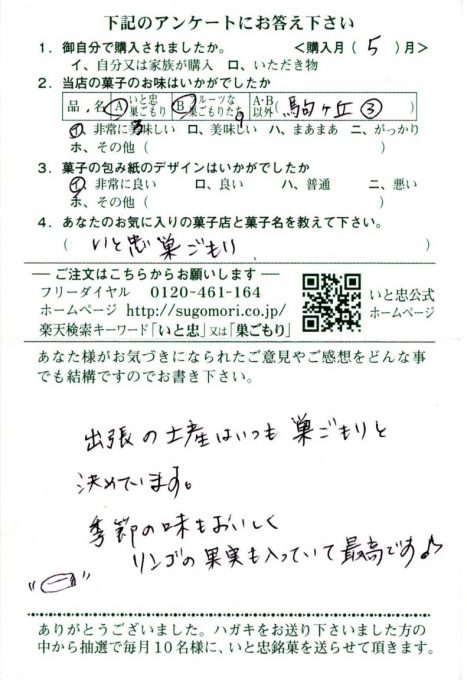 下記のアンケートにお答え下さい
1．御自分で購入されましたか。 ＜購入月（ 5 ）月＞
イ、自分又は家族が購入 ロ、いただき物
2．当店の菓子のお味はいかがでしたか
品，名 A いと忠巣ごもり B フルーツな巣ごもりたち A･B以外（ 駒ヶ丘 ③ ）
イ、非常に美味しい ロ、美味しい ハ、まあまあ ニ、がっかり
ホ、その他（ ）
3．菓子の包み紙のデザインはいかがでしたか
イ、非常に良い ロ、良い ハ、普通 ニ、悪い
ホ、その他（ ）
4．あなたのお気に入りの菓子店と菓子名を教えて下さい。
（ いと忠 巣ごもり ）
― ご注文はこちらからお願いします ―
フリーダイヤル 0120-461-164
ホームページ http://sugomori.co.jp/
楽天検索キーワード「いと忠」又は「巣ごもり」
いと忠公式
ホームページ
あなた様がお気づきになられたご意見やご感想をどんな事
でも結構ですのでお書き下さい。
出張の土産はいつも 巣ごもりと
決めています。
季節の味もおいしく
リンゴの果実も入っていて最高です♪
ありがとうございました。ハガキをお送り下さいました方の
中から抽選で毎月10名様に、いと忠銘菓を送らせて頂きます。